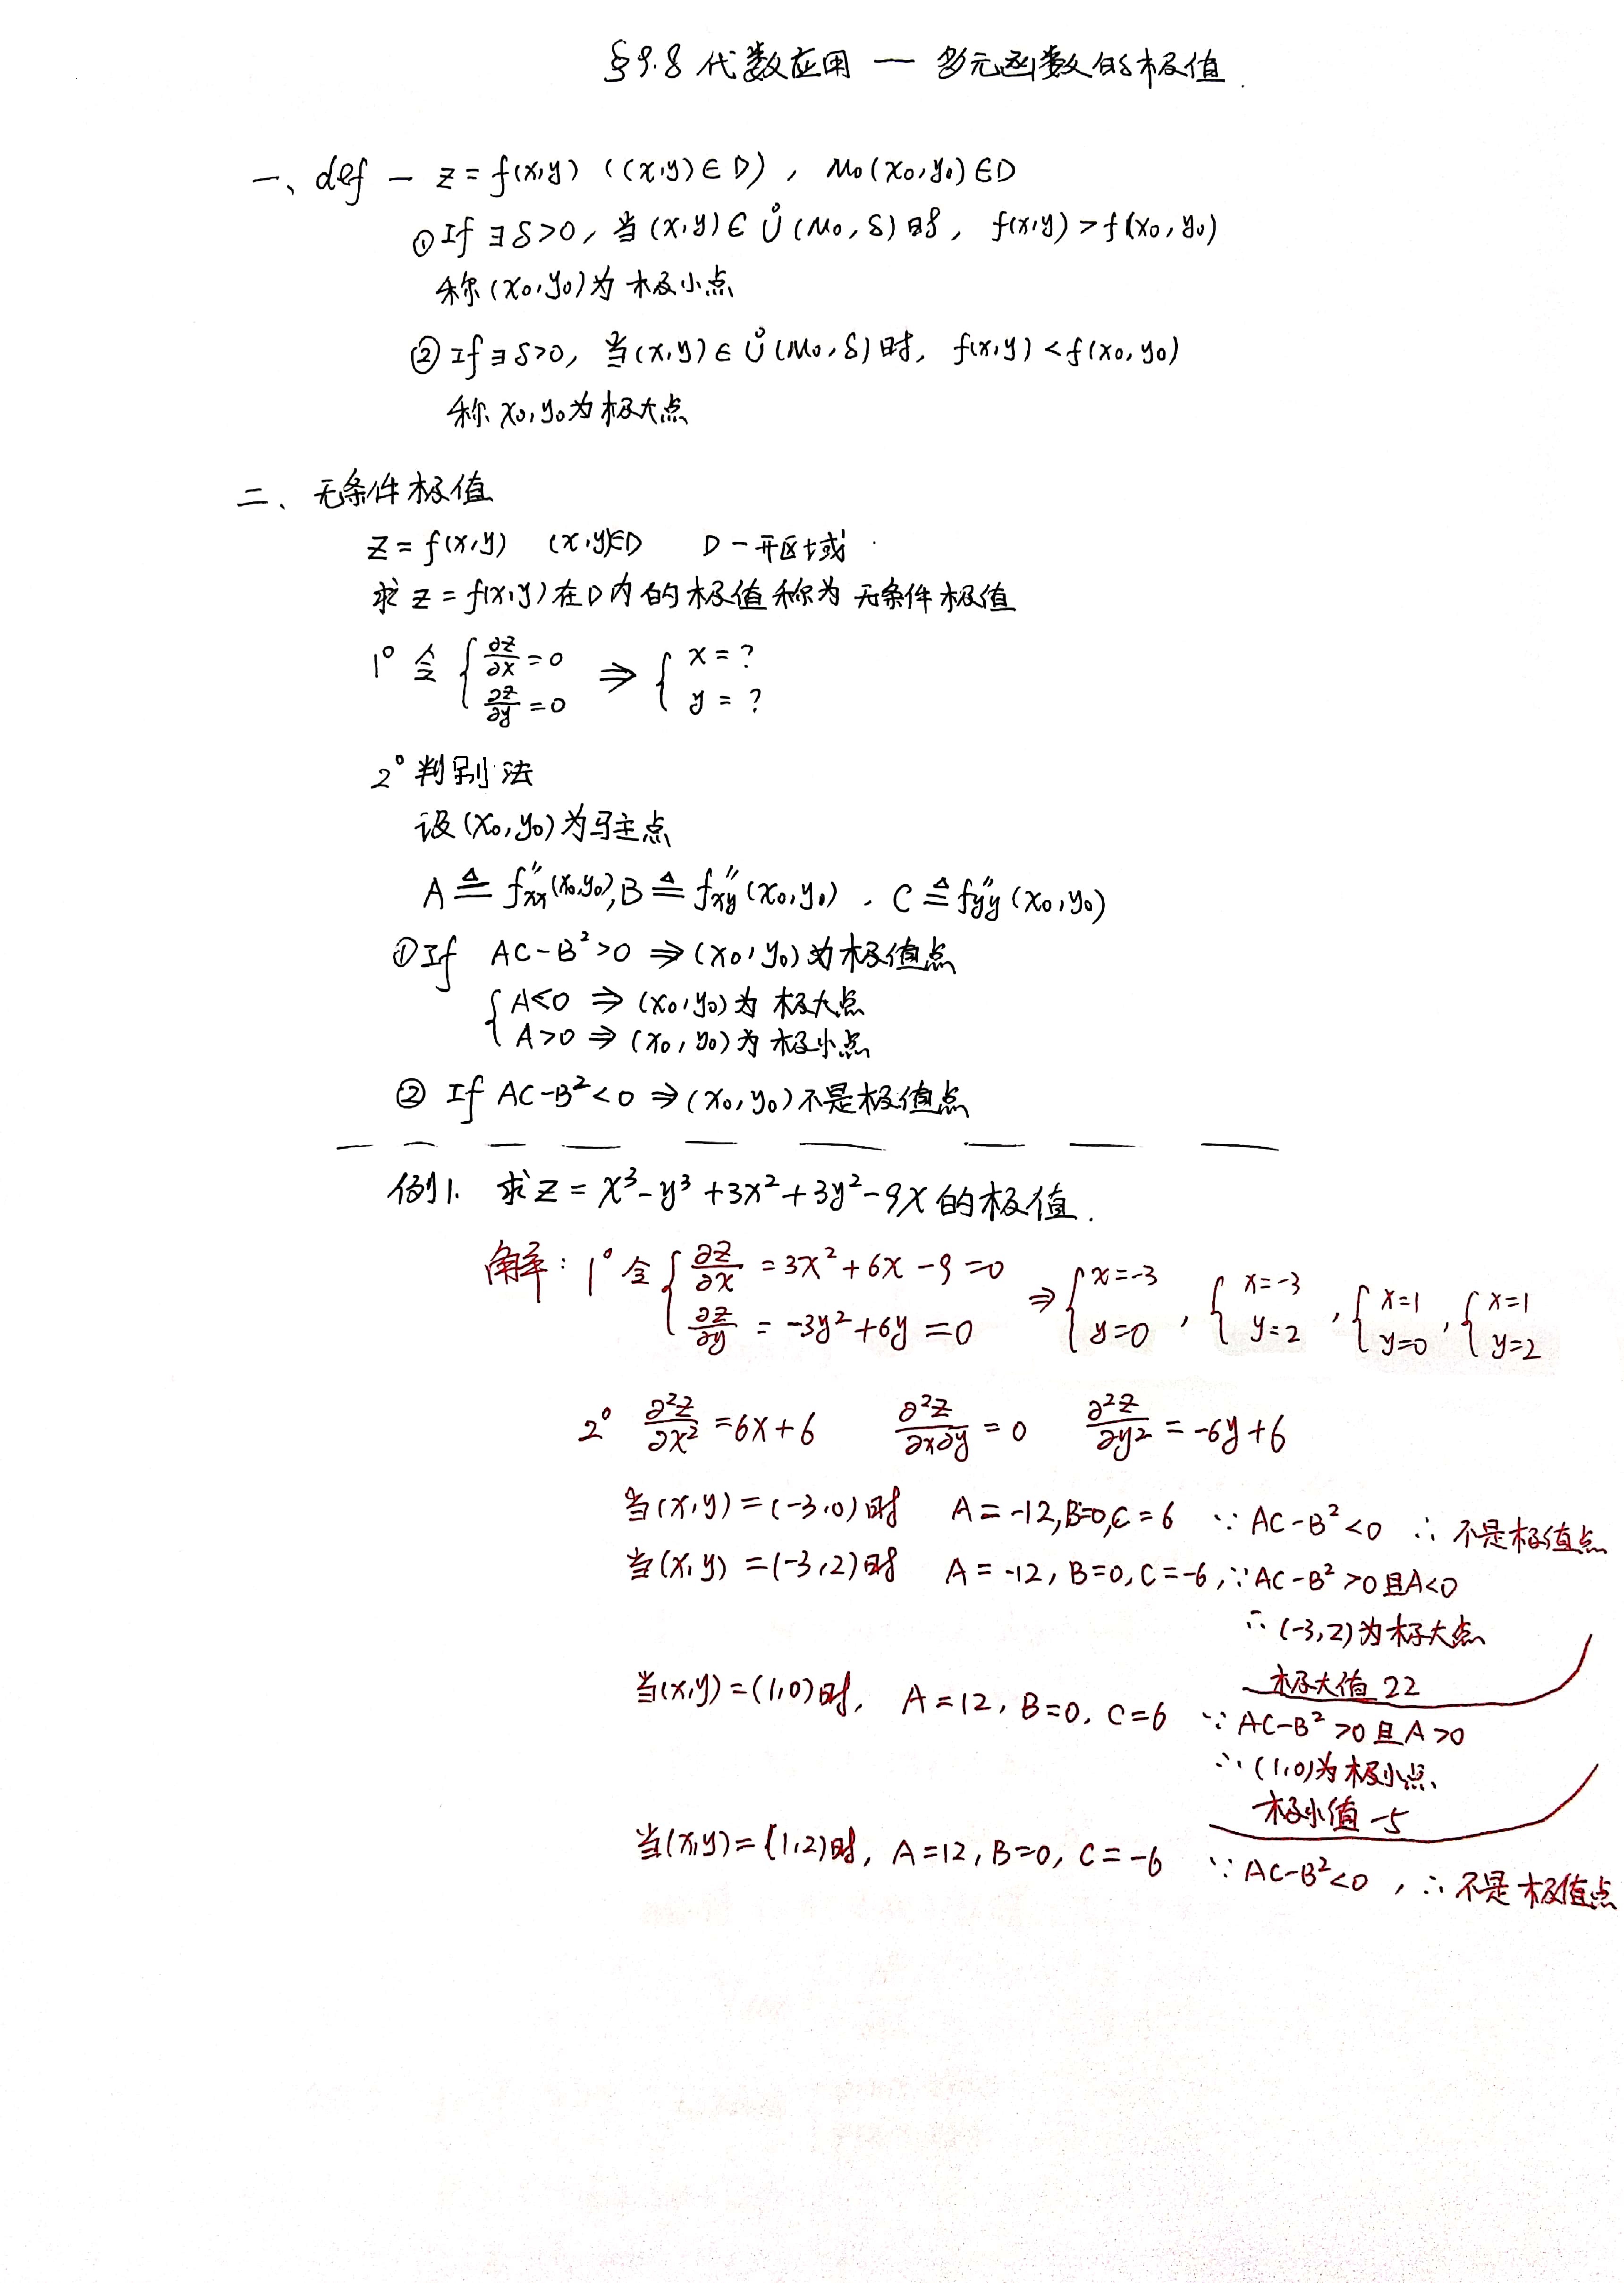 §9.8 代数应用 — 多元函数的极值.
一、def — z = f(x,y) ((x,y)∈D), M₀(x₀,y₀)∈D
① If ∃δ>0, 当(x,y)∈Ů(M₀,δ)时, f(x,y)>f(x₀,y₀)
称(x₀,y₀)为极小点
② If ∃δ>0, 当(x,y)∈Ů(M₀,δ)时, f(x,y)<f(x₀,y₀)
称 x₀,y₀为极大点
二、无条件极值
z = f(x,y) (x,y)∈D D — 开区域.
求 z = f(x,y)在D内的极值称为无条件极值
1° 令 { ∂z/∂x = 0, ∂z/∂y = 0 ⇒ { x = ? y = ?
2° 判别法
设(x₀,y₀)为驻点
A ≜ f″xx(x₀,y₀), B ≜ f″xy(x₀,y₀), C ≜ f″yy(x₀,y₀)
① If AC-B²>0 ⇒ (x₀,y₀)为极值点
{ A<0 ⇒ (x₀,y₀)为极大点
A>0 ⇒ (x₀,y₀)为极小点
② If AC-B²<0 ⇒ (x₀,y₀)不是极值点
例1. 求 z = x³-y³+3x²+3y²-9x 的极值.
解: 1° 令 { ∂z/∂x = 3x²+6x-9=0, ∂z/∂y = -3y²+6y=0 ⇒ { x=-3 y=0, { x=-3 y=2, { x=1 y=0, { x=1 y=2
2° ∂²z/∂x² = 6x+6 ∂²z/∂x∂y = 0 ∂²z/∂y² = -6y+6
当(x,y)=(-3,0)时 A=-12, B=0, C=6 ∵ AC-B²<0 ∴ 不是极值点
当(x,y)=(-3,2)时 A=-12, B=0, C=-6, ∵ AC-B²>0且A<0
∴ (-3,2)为极大点
极大值 22
当(x,y)=(1,0)时, A=12, B=0, C=6 ∵ AC-B²>0且A>0
∴ (1,0)为极小点
极小值 -5
当(x,y)=(1,2)时, A=12, B=0, C=-6 ∵ AC-B²<0, ∴ 不是极值点